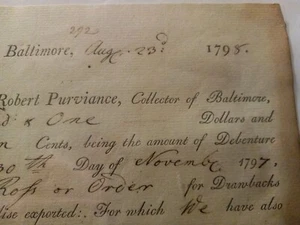 292
Baltimore, Aug. 23d 1798.
Robert Purviance, Collector of Baltimore,
& One Dollars and
Cents, being the amount of Debenture
30 Th Day of Novembr 1797,
Ross or Order for Drawbacks
dise exported:. For which We have also